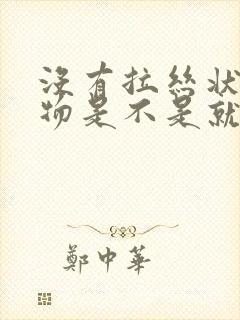 沒有拉絲狀
物是不是就
鄭中華